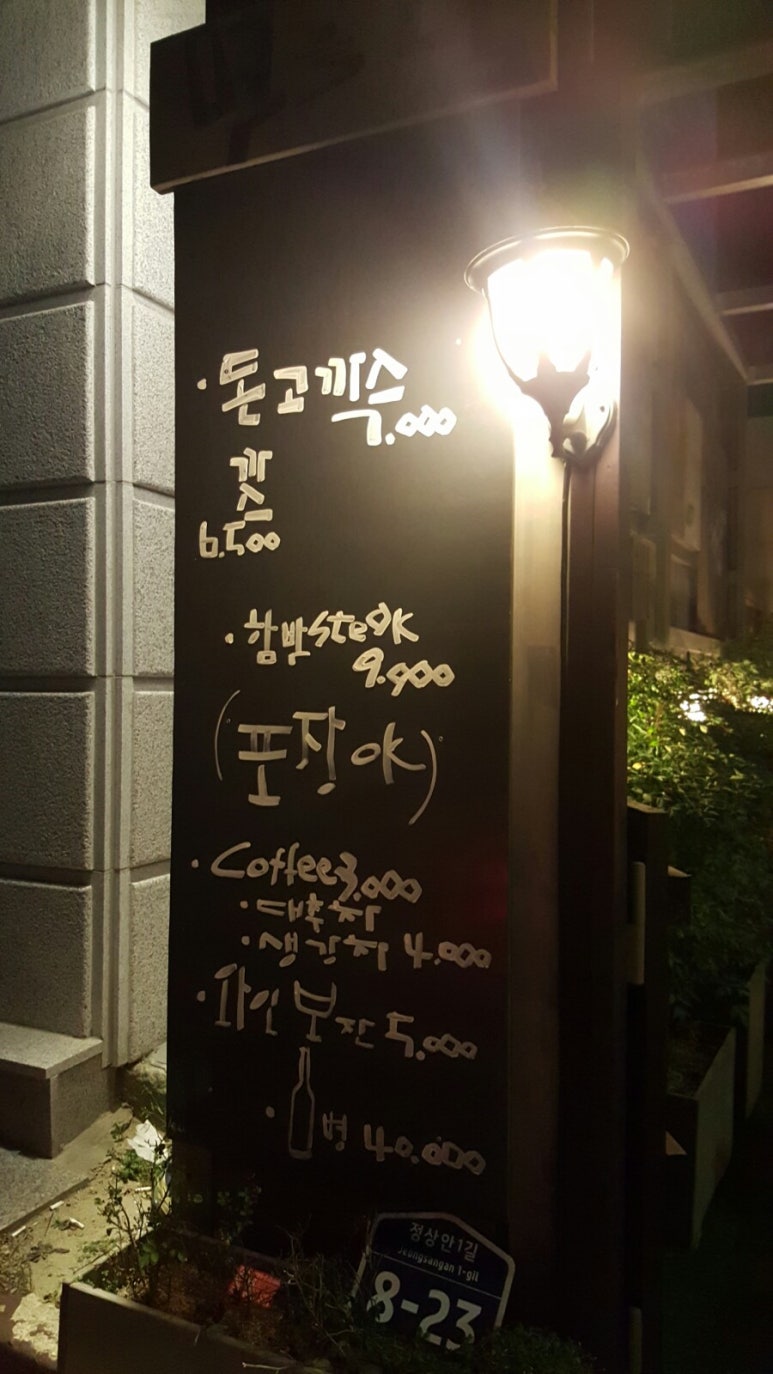 · 돈고까스
7.000
까스
6.500
· 함박steak
9.900
(포장 ok)
· Coffee 3.000
· 대추차
· 생강차 4.000
· 와인 보잔 5.000
· 병 40.000
정상안1길
Jeongsangan 1-gil
8-23